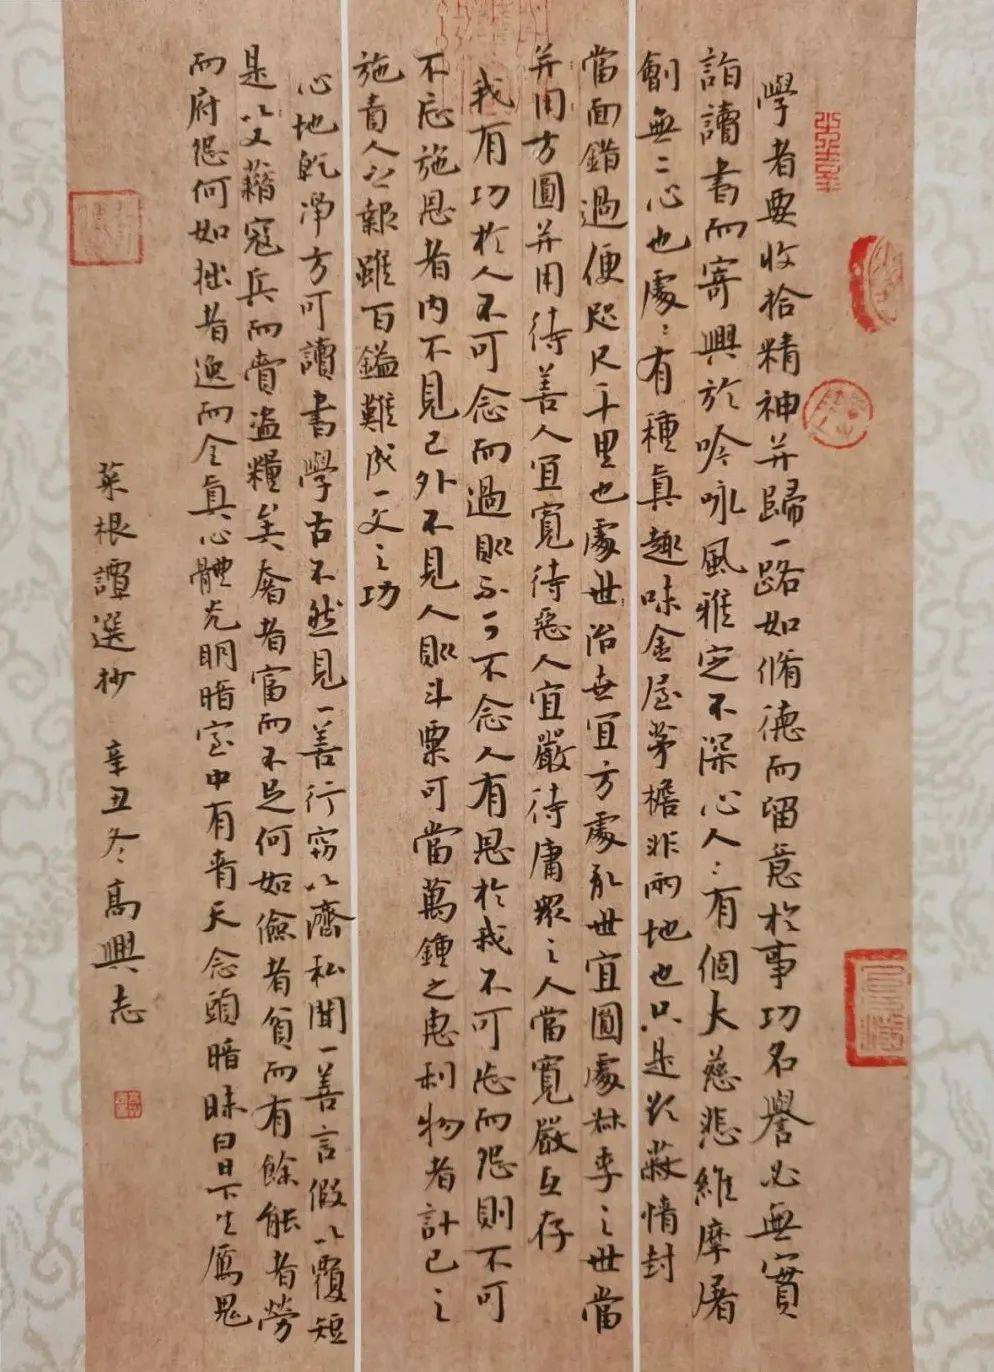 學者要收拾精神并歸一路如脩德而留意於事功名譽必無實
詣讀書而寄興於吟咏風雅定不深心人〻有個大慈悲維摩屠
劊無二心也處〻有種真趣味金屋茅檐非兩地也只是欲蔽情封
當面錯過便咫尺千里也處世治世宜方處亂世宜圓處叔季之世當
并用方圓并用待善人宜寬待惡人宜嚴待庸眾之人當寬嚴互存
我有功於人不可念而過則不可不念人有恩於我不可忘而怨則不可
不忘施恩者内不見己外不見人則斗粟可當萬鍾之惠利物者計己之
施責人之報雖百鎰難成一文之功
心地乾淨方可讀書學古不然見一善行窃以濟私聞一善言假以覆短
是以又藉寇兵而賫盜糧矣奢者富而不足何如儉者貧而有餘能者勞
而府怨何如拙者逸而全真心體光明暗室中有青天念頭暗昧白日下生厲鬼
菜根譚選抄 辛丑冬高興志